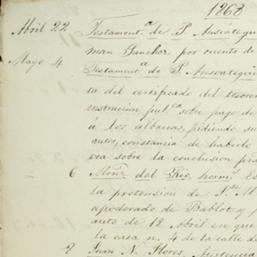 1868
Abril 22 Testament.ª de P. Anscategui
man Sanchez por cuenta de
Mayo 4 Testament.ª de P. Anscategui
sa del certificado del tesorero
instruccion pub.ca sobre pago de
á los albaceas pidiendo su
autos, constancia de haberlo
cea sobre la conclusion
6
la pretension de
apoderado de Bablot y
auto de 12 Abril en que
la casa n. 4 de la calle de
8 Juan N. Flores,